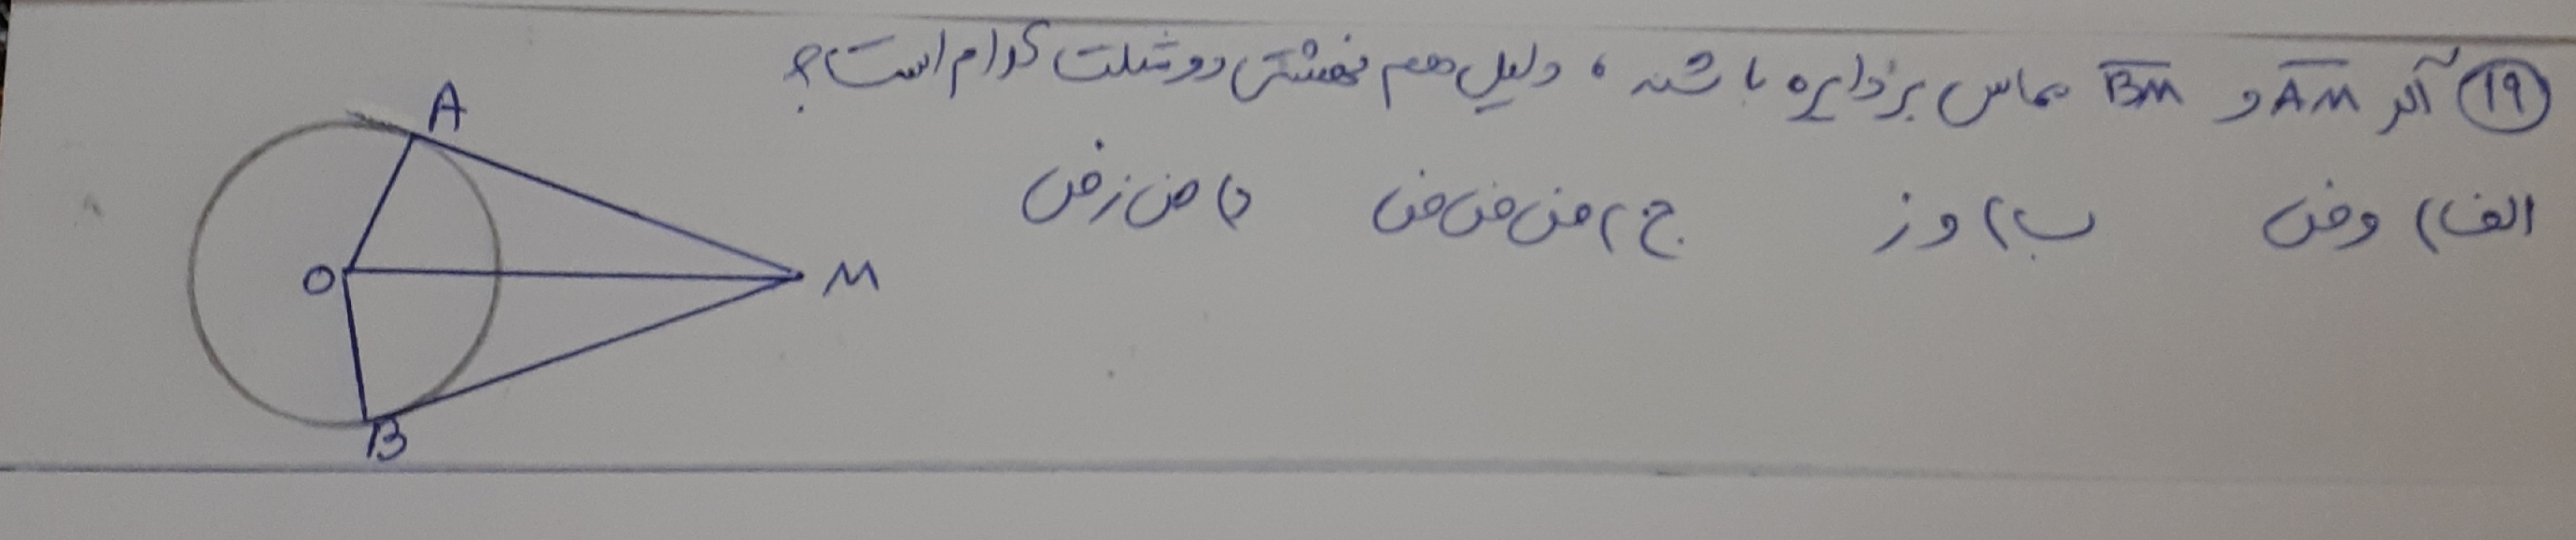 ۱۹ اگر AM و BM مماس بر دایره باشند، دلیل هم نهشتی دو مثلث کدام است؟
الف) وض ب) وز ج) ض ض ض د) ض ز ض
A
O
M
B